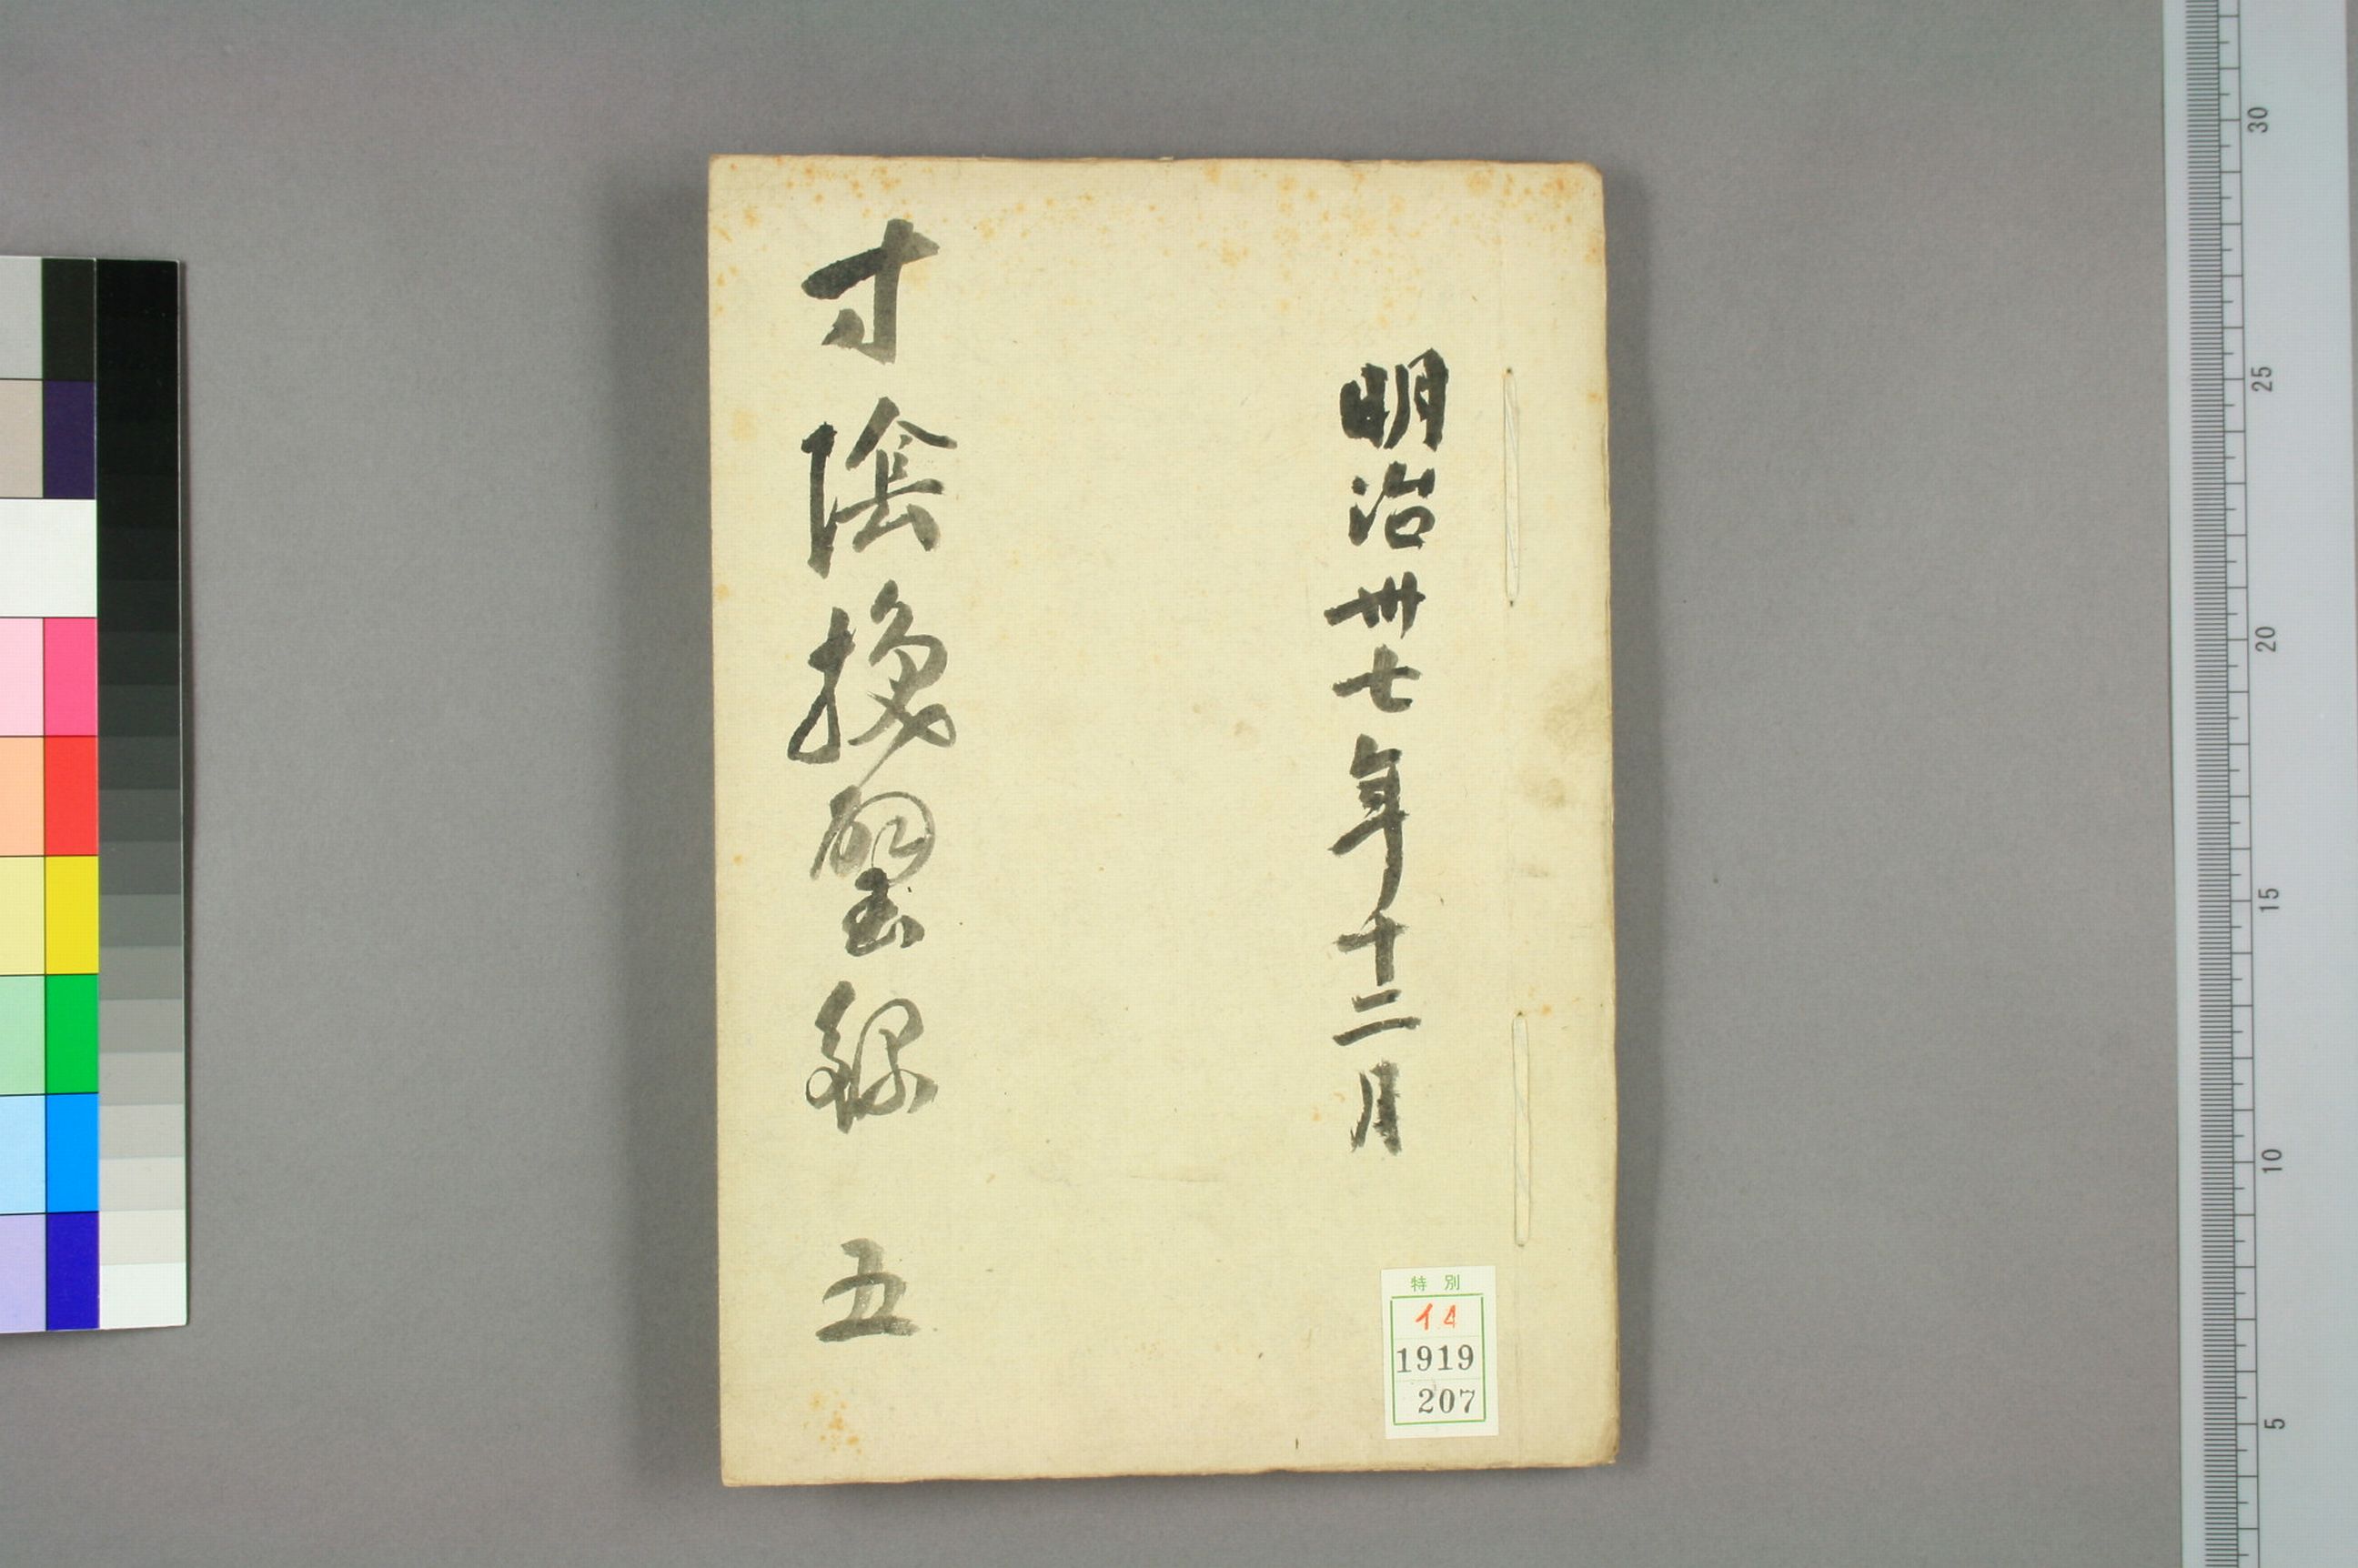 明治卅七年十二月
寸陰換璧録 五
特別
イ4
1919
207
30
25
20
15
10
5